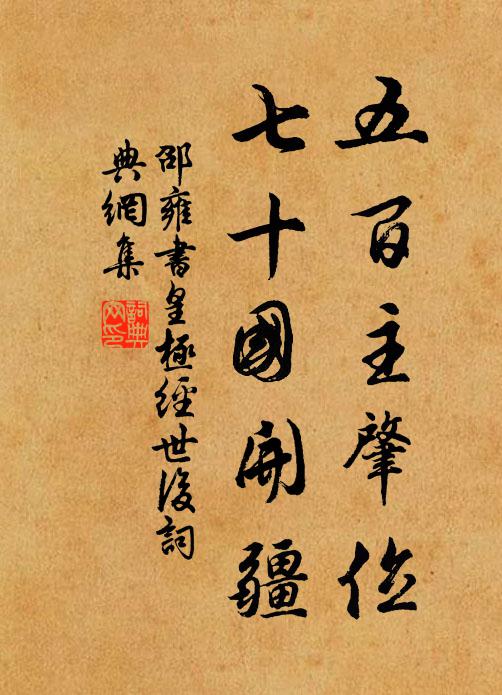 五百主肇位
七十國開疆
邵雍書皇極經世後詞
典網集
詞典
网印